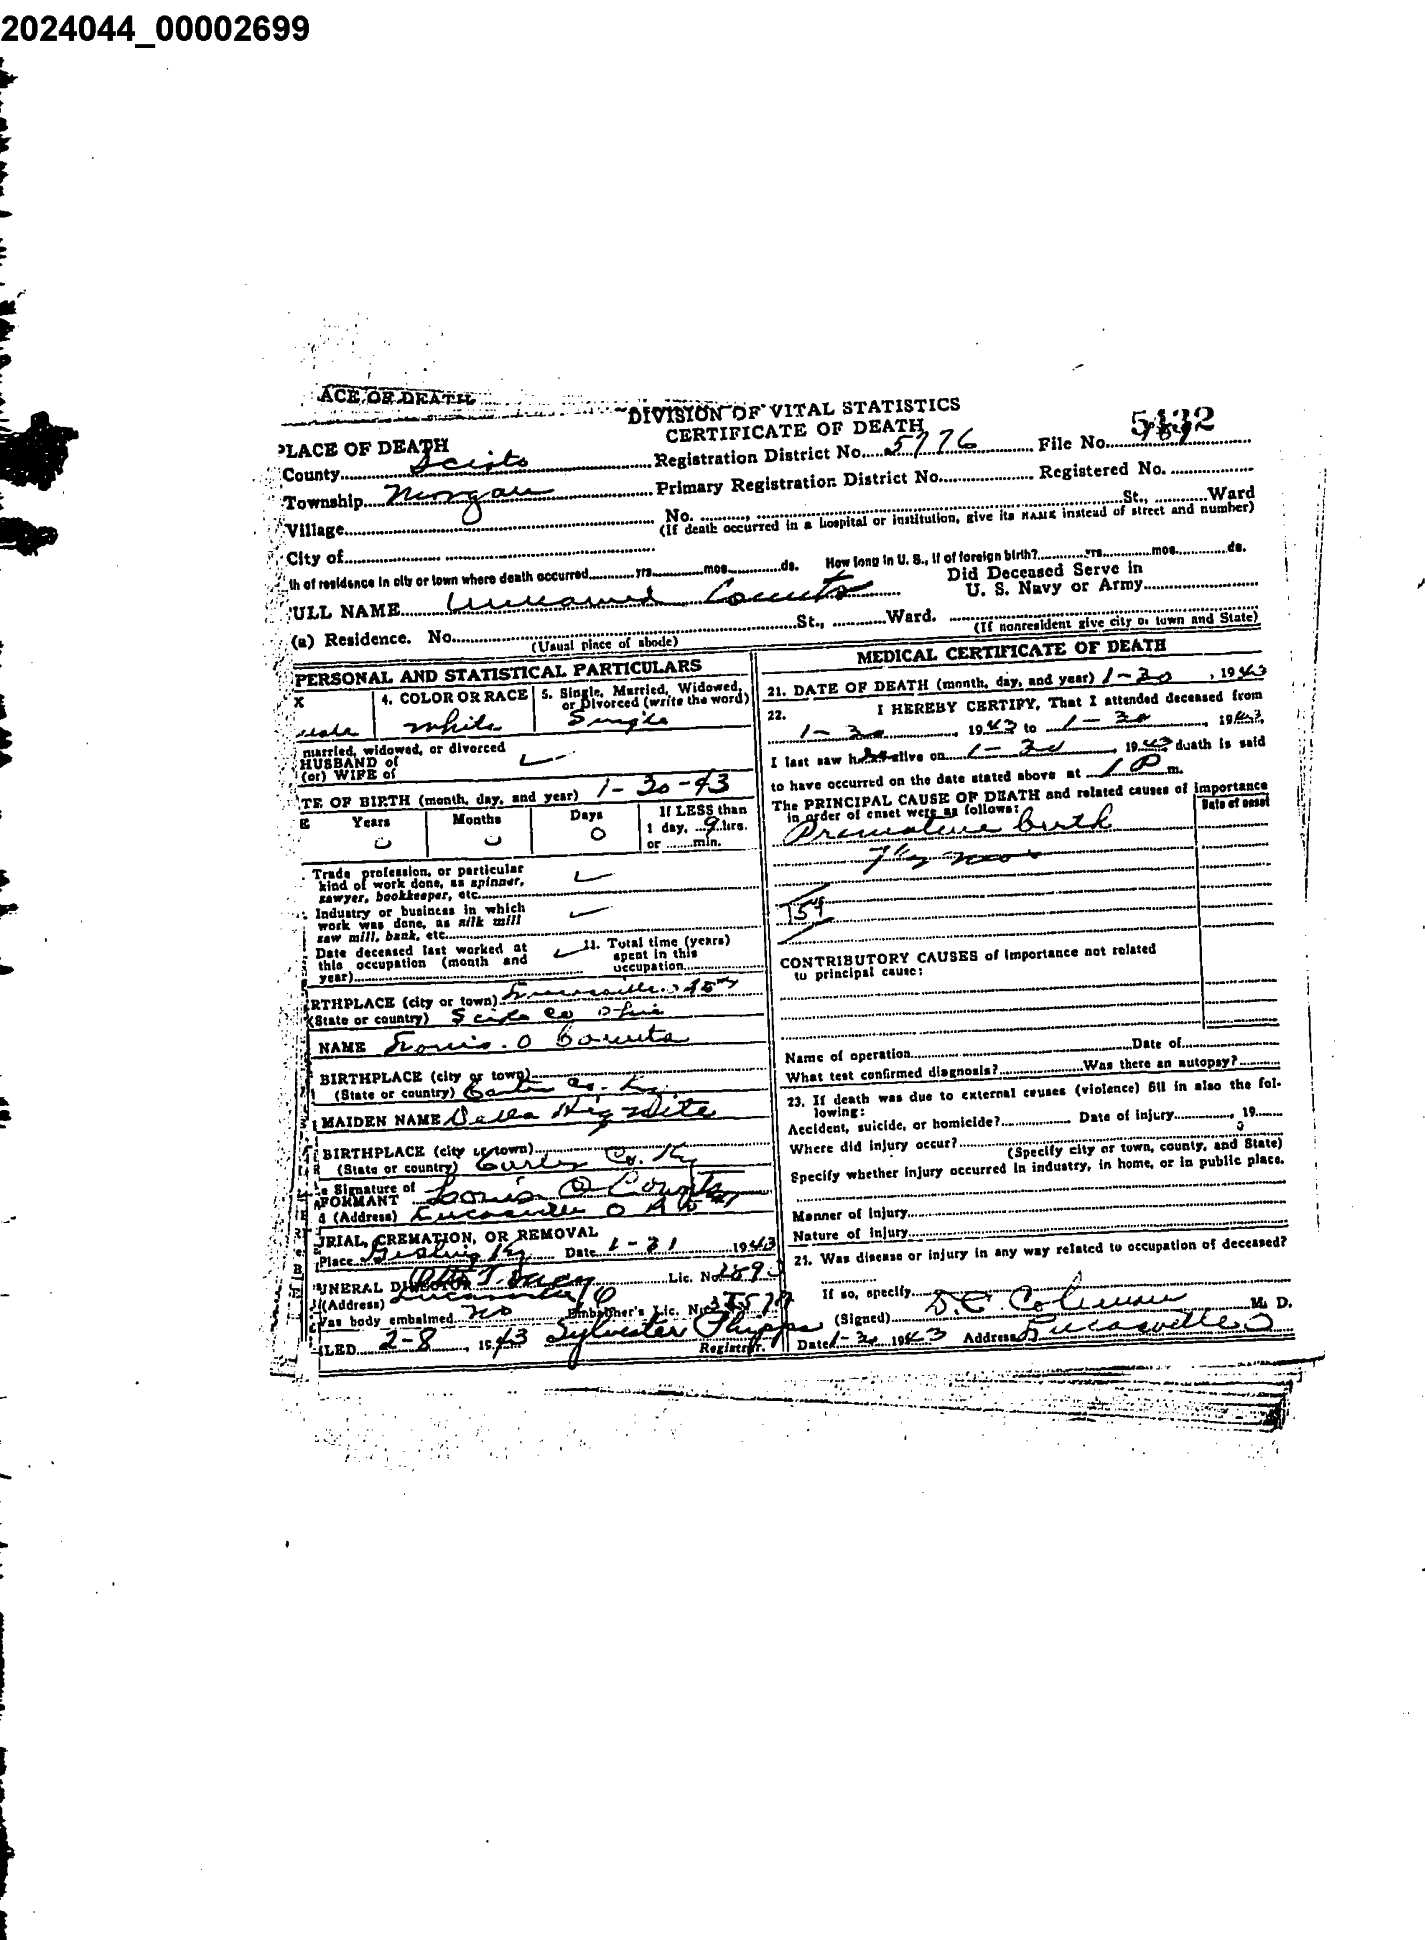 2024044_00002699
ACE OF DEATH
DIVISION OF VITAL STATISTICS
CERTIFICATE OF DEATH
5432
PLACE OF DEATH
County Scioto Registration District No. 5776 File No.
Township Morgan Primary Registration District No. Registered No.
Village No. St., Ward
(If death occurred in a hospital or institution, give its NAME instead of street and number)
City of
th of residence in city or town where death occurred yrs. mos. ds. How long in U. S., if of foreign birth? yrs. mos. ds.
ULL NAME Unnamed Counts Did Deceased Serve in
U. S. Navy or Army
(a) Residence. No. St., Ward.
(Usual place of abode) (If nonresident give city or town and State)
PERSONAL AND STATISTICAL PARTICULARS
X 4. COLOR OR RACE 5. Single, Married, Widowed,
or Divorced (write the word)
white Single
married, widowed, or divorced
HUSBAND of
(or) WIFE of
TE OF BIRTH (month, day, and year) 1-30-43
E Years Months Days If LESS than
0 0 0 1 day, 9 hrs.
or min.
Trade profession, or particular
kind of work done, as spinner,
sawyer, bookkeeper, etc.
Industry or business in which
work was done, as silk mill
saw mill, bank, etc.
Date deceased last worked at 11. Total time (years)
this occupation (month and spent in this
year) occupation
RTHPLACE (city or town) Lucasville
(State or country) Scioto Co Ohio
NAME Louis O Counts
BIRTHPLACE (city or town)
(State or country) Carter Co. Ky.
MAIDEN NAME Della Hignite
BIRTHPLACE (city or town)
(State or country) Carter Co. Ky
e Signature of
FORMANT Louis O Counts
d (Address) Lucasville O
URIAL, CREMATION, OR REMOVAL
Place Ky Date 1-31 1943
UNERAL DIRECTOR Lic. No.
(Address) Lucasville O
Was body embalmed no Embalmer's Lic. No.
ILED 2-8, 1943 Sylvester Phipps
Registrar.
MEDICAL CERTIFICATE OF DEATH
21. DATE OF DEATH (month, day, and year) 1-30, 1943
22. I HEREBY CERTIFY, That I attended deceased from
1-30, 1943 to 1-30, 1943,
I last saw h alive on 1-30, 1943 death is said
to have occurred on the date stated above at 1 P m.
The PRINCIPAL CAUSE OF DEATH and related causes of importance
in order of onset were as follows: Date of onset
Premature birth
7 mos
159
CONTRIBUTORY CAUSES of importance not related
to principal cause:
Name of operation Date of
What test confirmed diagnosis? Was there an autopsy?
23. If death was due to external causes (violence) fill in also the fol-
lowing:
Accident, suicide, or homicide? Date of injury, 19
Where did injury occur?
(Specify city or town, county, and State)
Specify whether injury occurred in industry, in home, or in public place.
Manner of injury
Nature of injury
24. Was disease or injury in any way related to occupation of deceased?
If so, specify
(Signed) D. C. Coleman M. D.
Date 1-30 1943 Address Lucasville O